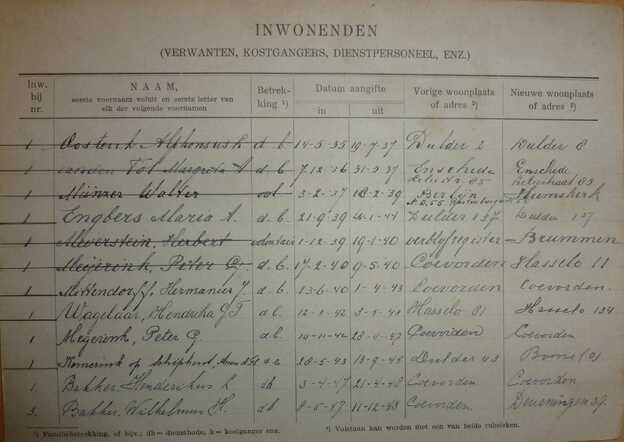 INWONENDEN
(VERWANTEN, KOSTGANGERS, DIENSTPERSONEEL, ENZ.)
Inw. bij nr.
NAAM,
eerste voornaam voluit en eerste letter van elk der volgende voornamen
Betrekking ¹)
Datum aangifte
in uit
Vorige woonplaats of adres ²)
Nieuwe woonplaats of adres ²)
1 Alphonsus H d.b. 14-5-35 19-7-37 Dulder 2 Dulder 8
1 Tol Margreta A d.b. 7-12-36 31-3-37 Enschede Enschede
1 Münzer Walter 3-2-37 18-2-39 Berlijn Heemskerk
1 Engbers Maria A. d.b. 21-9-39 Dulder 137 Dulder 137
1 Meverstein, Herbert 1-12-39 19-1-40 verblijfregister Brummen
1 Meijerink, Peter G. d.b. 17-2-40 9-5-40 Coevorden Hasselo 11
1 Mittendorff, Hermanus J. d.b. 13-6-40 1-4-43 Coevorden Coevorden
1 Wagelaar, Hendrika G.F. d.b. Hasselo 81 Hasselo 134
1 Meyerink, Peter G. d.b. Coevorden Coevorden
1 Schiphorst, 28-5-43 13-9-45 Dulder 43
1. Bekker Henderikus L db 3-4-47 21-4-48 Coevorden Coevorden
3. Bakker Wilhelmus H. db 8-5-47 11-12-48 Coevorden Deurningen 39.
¹) Familiebetrekking, of bijv.: db= dienstbode, k= kostganger enz.
²) Volstaan kan worden met een van beide rubrieken.